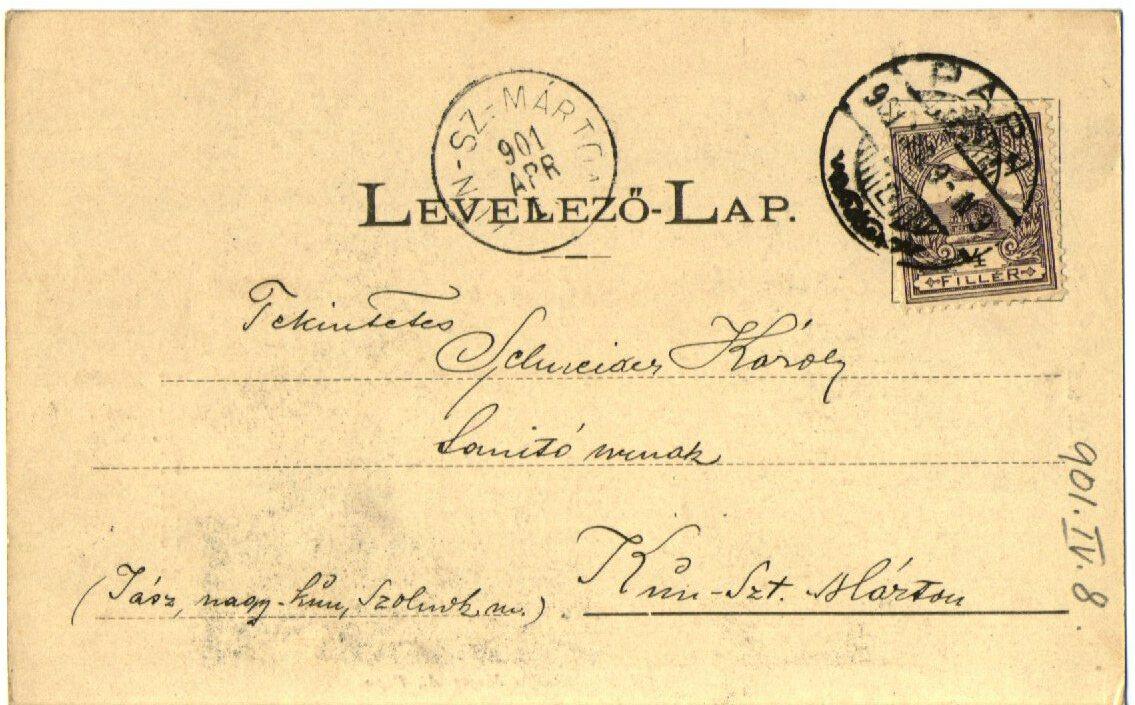 KUN-SZ-MÁRTON
901
APR
PÁPA
LEVELEZŐ-LAP.
FILLÉR
Tekintetes
Schneider Károly
Tanító urnak
Kun-Szt. Márton
(Jász, nagy-kun, Szolnok m.)
901. IV. 8